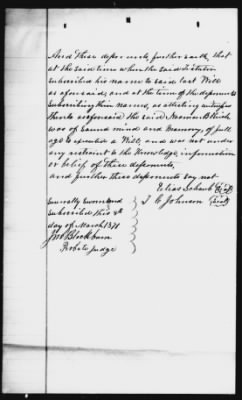 And these deponents further saith, that
at the said time when the said Testator
subscribed his name to said last Will
as aforesaid, and at the time of the deponents
subscribing their names, as attesting witnesses
thereto as aforesaid the said Norman B
was of sound mind and memory, of full
age to execute a Will and was not under
any restraint to the knowledge, information
or belief of these deponents,
and further these deponents say not
Elias Schaub
Severally sworn and
subscribed this 8th
day of March 1871
J. C. Johnson
Jno Blackburn
Probate Judge